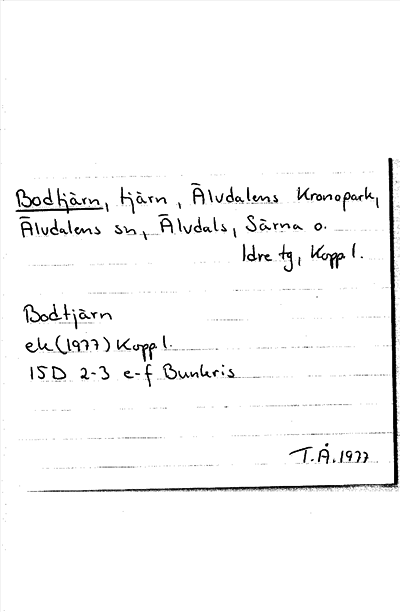 Bodtjärn, tjärn, Älvdalens Kronopark,
Älvdalens sn, Älvdals, Särna o.
Idre tg, Kopp l.
Bodtjärn
ek (1977) Kopp l.
15D 2-3 e-f Bunkris
T.Å. 1977